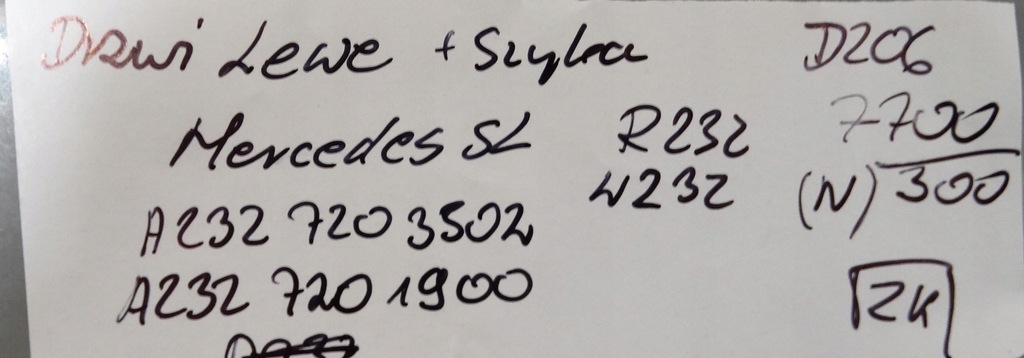 Drzwi Lewe + Szyba D206
Mercedes SL R232 7700
W232 (N) 300
A232 720 3502
A232 720 1900
ZK